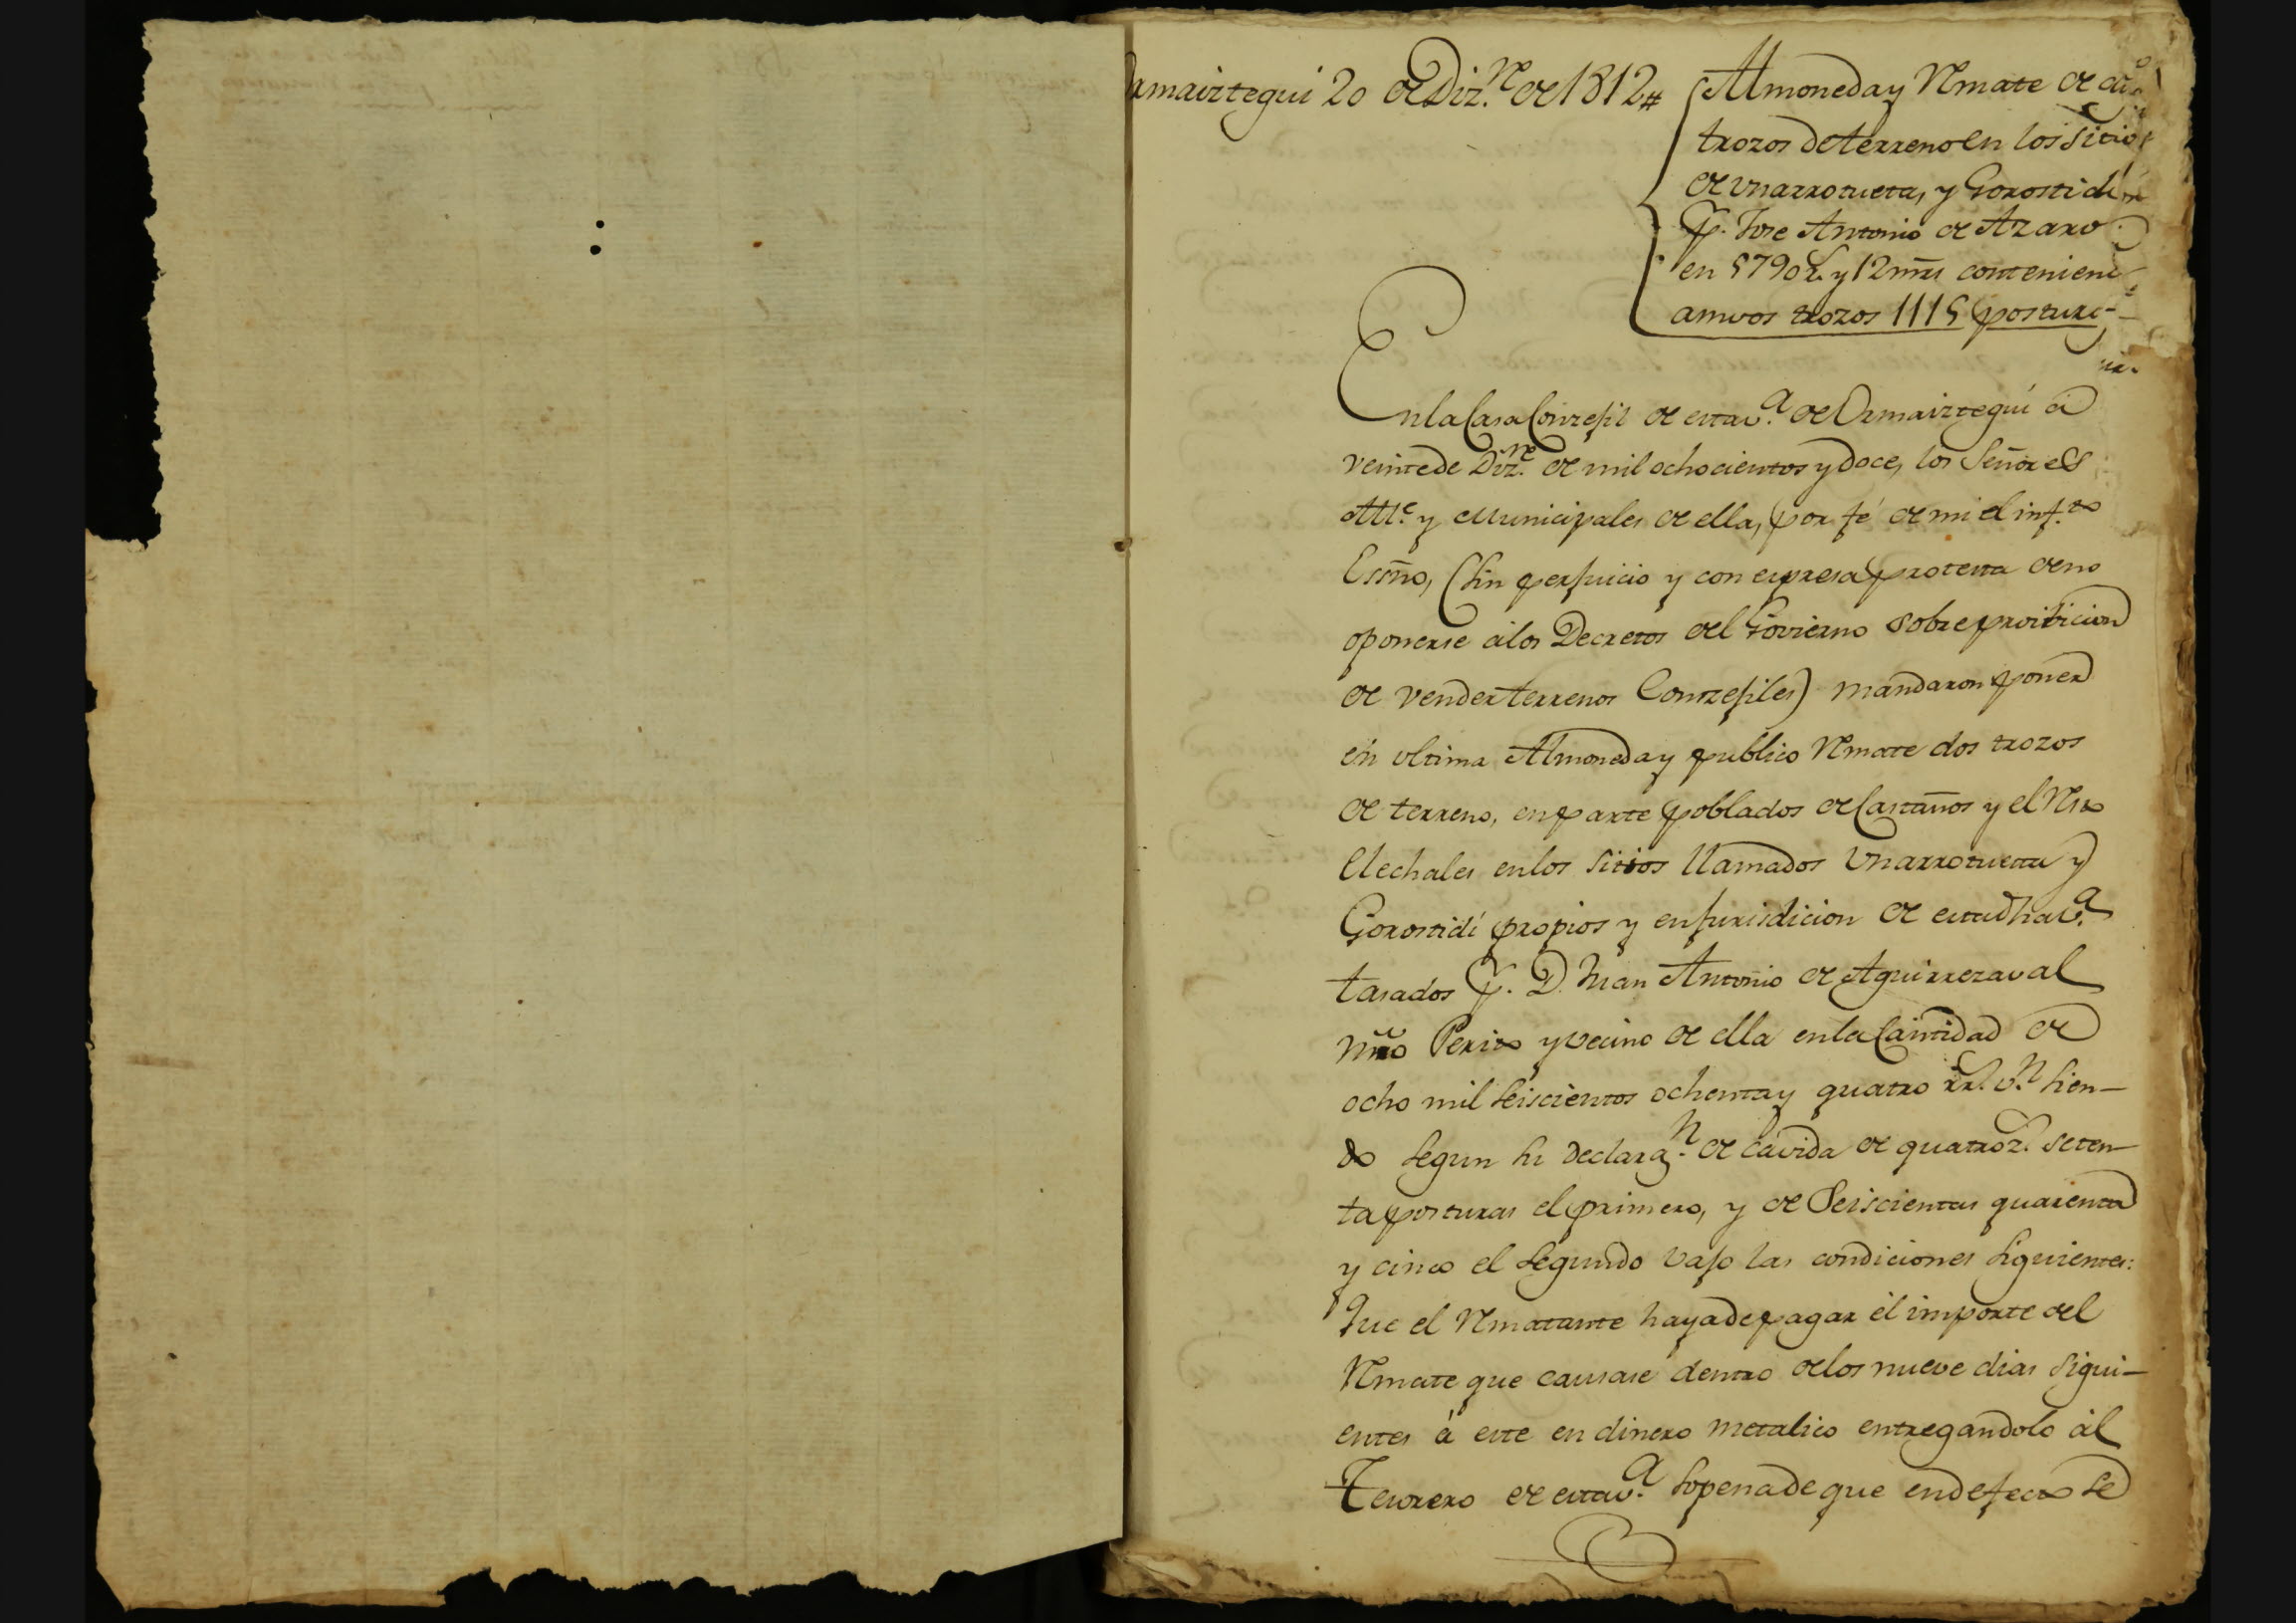 rmaiztegui 20 de Diz.re de 1812#
Almoneda y Rmate de
trozos de terreno en los sitios
de Unarrotueta, y Gorostidi
p.r Jose Antonio de Azaro
en 5790 R. y 12 mrs conteniend
amvos trozos 1115 postura
En la Casa Conzejil de esta v.a de Ormaiztegui á
veinte de Diz.re de mil ochocientos y doce, los Señores
Alc.e y Municipales de ella, por fé de mi el inf.to
Essno, (sin perjuicio y con expresa protesta de no
oponerse á los Decretos del Govierno sobre proivicion
de vender terrenos Conzejiles) mandaron poner
en ultima Almoneda y publico Rmate dos trozos
de terreno, en parte poblados de Castaños y el Rsto
Elechales en los sitios llamados Unarrotueta y
Gorostidi propios y en jurisdicion de esta dha v.a
tasados p.r D. Juan Antonio de Aguirrezaval
Mro Perito y vecino de ella en la Cantidad de
ocho mil seiscientos ochenta y quatro rr.s v.n sien-
do segun su declaraz.n de cavida de quatroz.s seten-
ta posturas el primero, y de Seiscientas quarenta
y cinco el segundo vajo las condiciones siguientes:
Que el Rmatante haya de pagar el importe del
Rmate que causase dentro de los nueve dias sigui-
entes á este en dinero metalico entregandolo al
Tesorero de esta v.a sopena de que en defecto se